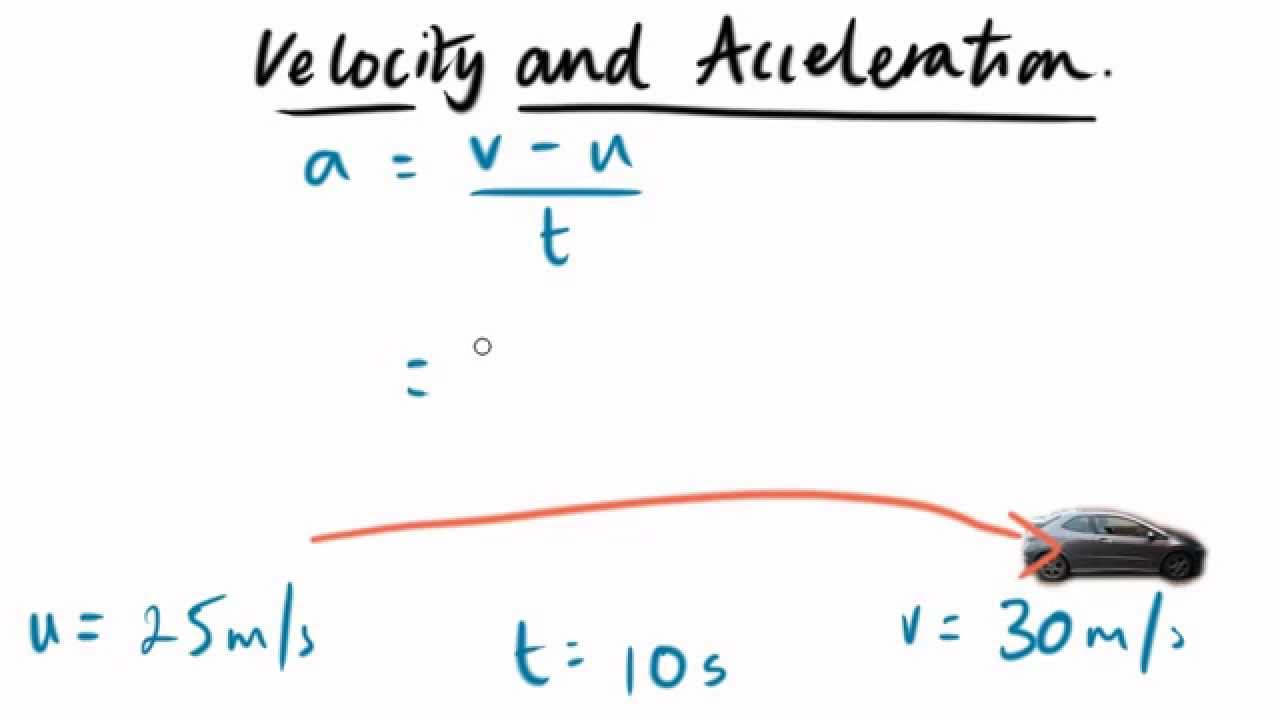 Velocity and Acceleration.
a = v - u
t
=
u = 25m/s
t = 10s
v = 30m/s